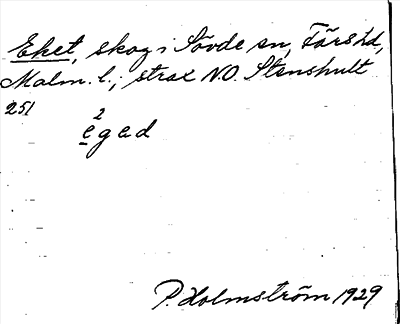 Eket, skog i Sövde sn, Färs hd,
Malm. l.; strax N.O. Stenshult
251
2
egad
P. Holmström 1929